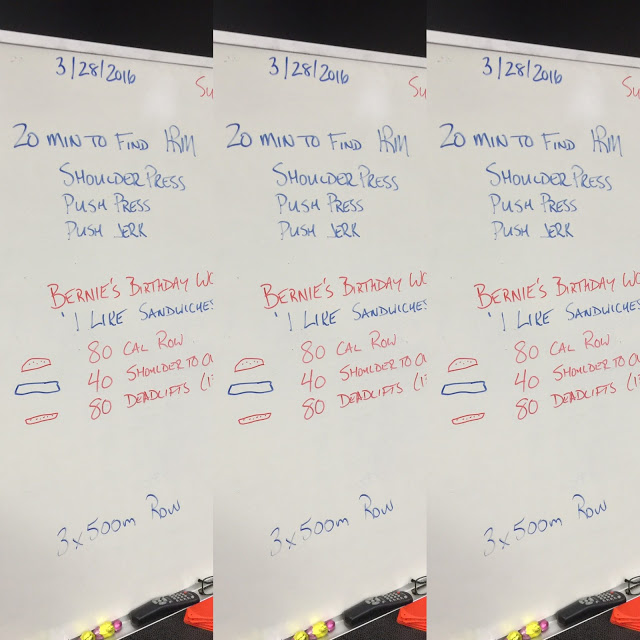 3/28/2016
Su
20 MIN TO FIND 1RM
SHOULDER PRESS
PUSH PRESS
PUSH JERK
BERNIE'S BIRTHDAY WO
'I LIKE SANDWICHES
80 CAL ROW
40 SHOULDER TO O
80 DEADLIFTS (1
3x500m ROW
3/28/2016
Su
20 MIN TO FIND 1RM
SHOULDER PRESS
PUSH PRESS
PUSH JERK
BERNIE'S BIRTHDAY WO
'I LIKE SANDWICHES
80 CAL ROW
40 SHOULDER TO O
80 DEADLIFTS (1
3x500m ROW
3/28/2016
Su
20 MIN TO FIND 1RM
SHOULDER PRESS
PUSH PRESS
PUSH JERK
BERNIE'S BIRTHDAY WO
'I LIKE SANDWICHES
80 CAL ROW
40 SHOULDER TO O
80 DEADLIFTS (1
3x500m ROW